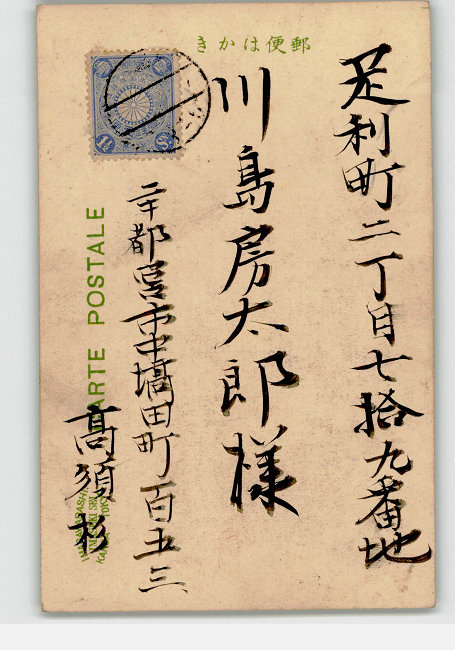 郵便はかき
足利町二丁目七拾九番地
川島房太郎様
宇都宮市中塙田町百五三
高須杉
CARTE POSTALE
1½ Sn.